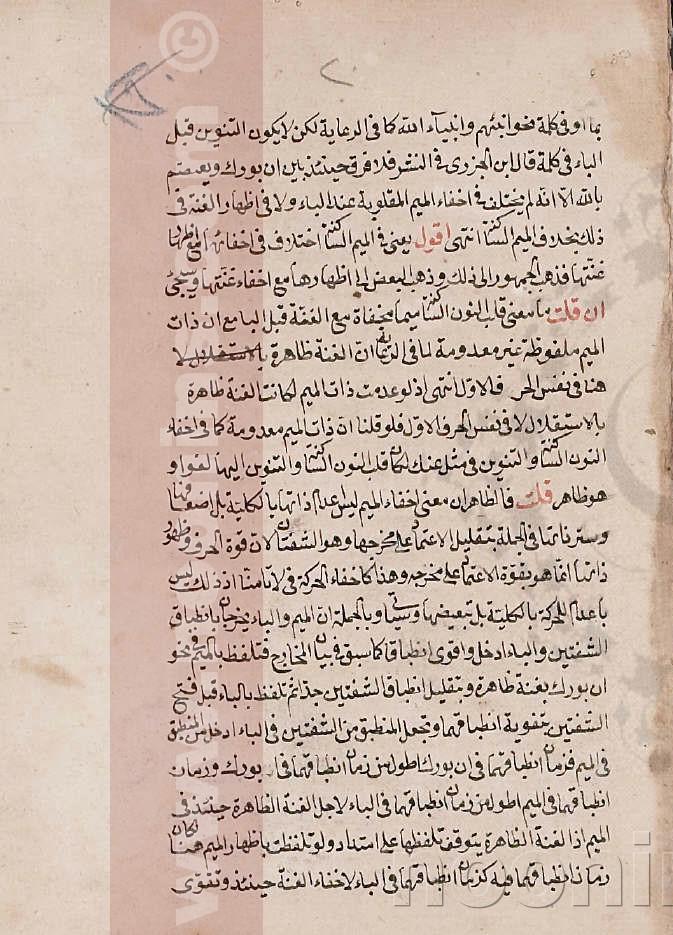 ٢٠
بما او فى كلمة نحو انبئهم وانبياء الله كما فى الرعاية لكن لا يكون التنوين قبل
الباء فى كلمة قال ابن الجزرى فى النشر فلا فرق حينئذ بين ان بورك ويعتصم
بالله الا انه لم يختلف فى اخفاء الميم المقلوبة عند الباء ولا فى اظهار الغنة فى
ذلك بخلاف الميم الساكنة انتهى اقول يعنى فى الميم الساكنة اختلاف فى اخفائها مع اظهار
غنتها فذهب الجمهور الى ذلك وذهب البعض الى اظهارها مع اخفاء غنتها وسيجئ
ان قلت ما معنى قلب النون الساكنة ميما مخفاة مع الغنة قبل البا مع ان ذات
الميم ملفوظة غير معدومة لما فى الرعاية ان الغنة ظاهرة بالاستقلال لا
هنا فى نفس الحر فالاول انتهى اذ لو عدمت ذات الميم لكانت الغنة ظاهرة
بالاستقلال لا فى نفس الحرف الاول فلو قلنا ان ذات الميم معدومة كما فى اخفاء
النون الساكنة والتنوين فى مثل عنك لكان قلب النون الساكنة والتنوين اليها لغوا و
هو ظاهر قلت فالظاهر ان معنى اخفاء الميم ليس اعدام ذاتها بالكلية بل اضعافها
وستر ذاتها فى الجملة بتقليل الاعتماد على مخرجها وهو الشفتان لان قوة الحرف وظهور
ذاتها انما هو بقوة الاعتماد على مخرجه وهذا كاخفاء الحركة فى لا تامنا اذ ذلك ليس
باعدام الحركة بالكلية بل تبعيضها وسياتى وبالجملة ان الميم والباء يخرجان بانطباق
الشفتين والباء ادخل واقوى انطباقا كما سبق فى بيان المخارج فتلفظ بالميم فى نحو
ان بورك بغنة ظاهرة وبتقليل انطباق الشفتين جدا ثم تلفظ بالباء قبل فتح
الشفتين بتقوية انطباقهما وتجعل المنطبق من الشفتين فى الباء ادخل من المنطبق
فى الميم فزمان انطباقهما فى ان بورك اطول من زمان انطباقهما فى بورك وزمان
انطباقهما فى الميم اطول من زمان انطباقهما فى الباء لاجل الغنة الظاهرة حينئذ فى
الميم اذ الغنة الظاهرة يتوقف تلفظها على امتداد ولو تلفظت باظهار الميم هنا لكان
زمان انطباقهما فيه كزمان انطباقهما فى الباء لاخفاء الغنة حينئذ وتقوى